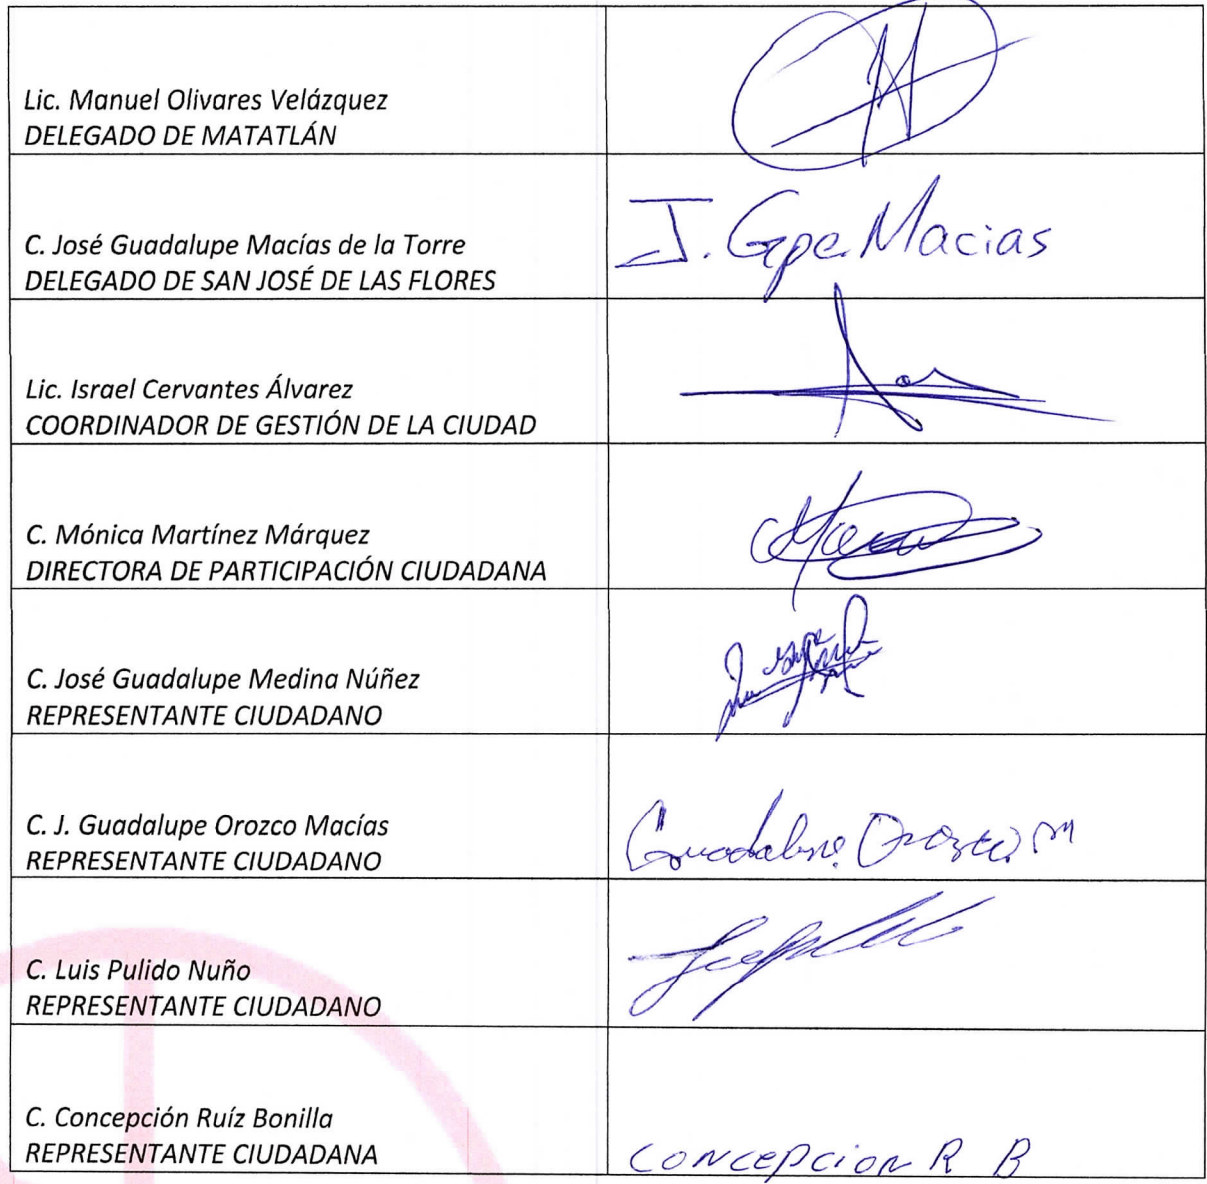 Lic. Manuel Olivares Velázquez
DELEGADO DE MATATLÁN
C. José Guadalupe Macías de la Torre
DELEGADO DE SAN JOSÉ DE LAS FLORES
J. Gpe. Macias
Lic. Israel Cervantes Álvarez
COORDINADOR DE GESTIÓN DE LA CIUDAD
C. Mónica Martínez Márquez
DIRECTORA DE PARTICIPACIÓN CIUDADANA
C. José Guadalupe Medina Núñez
REPRESENTANTE CIUDADANO
C. J. Guadalupe Orozco Macías
REPRESENTANTE CIUDADANO
Guadalupe Orozco M
C. Luis Pulido Nuño
REPRESENTANTE CIUDADANO
C. Concepción Ruíz Bonilla
REPRESENTANTE CIUDADANA
CONCEPCION R B